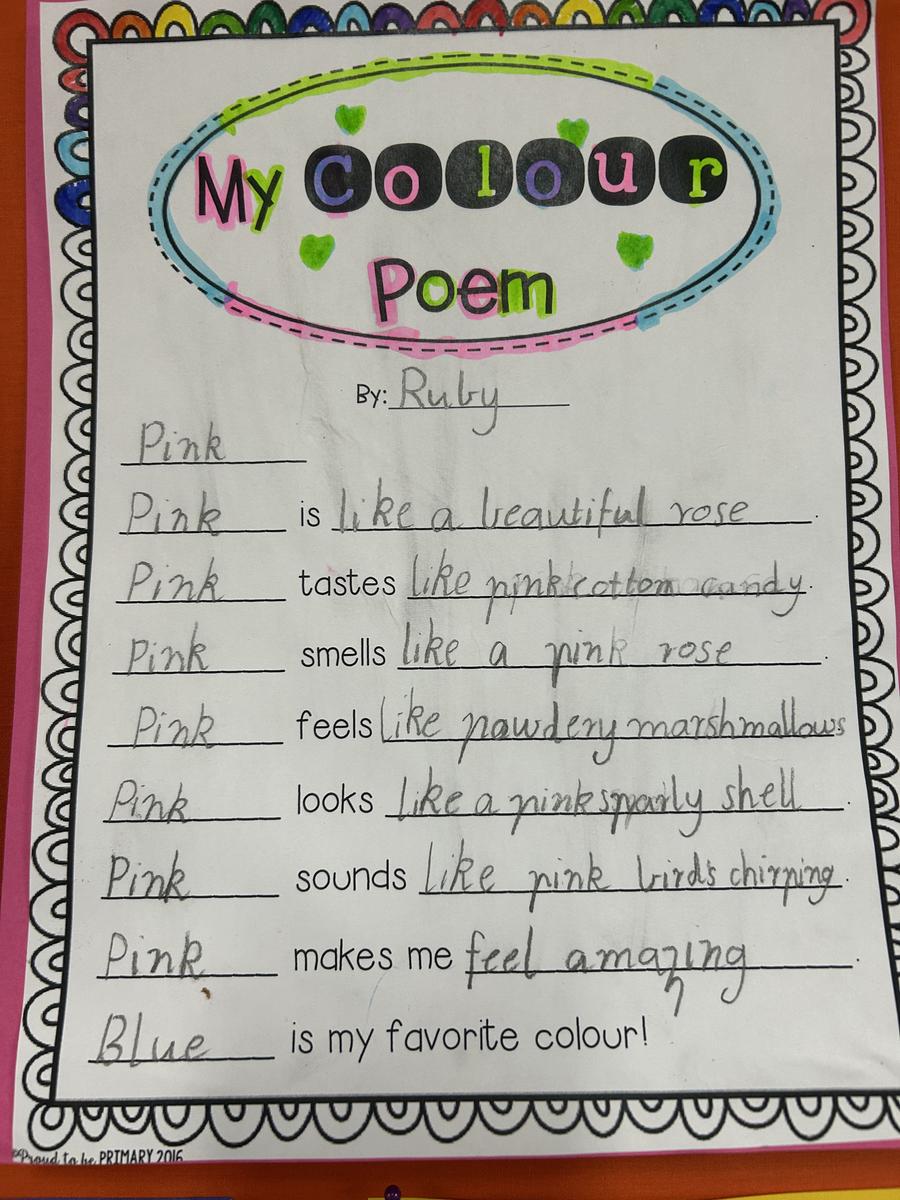 My Colour
Poem
By: Ruby
Pink
Pink is like a beautiful rose.
Pink tastes like pink cotton candy.
Pink smells like a pink rose.
Pink feels like pawdery marshmallows
Pink looks like a pink sparly shell.
Pink sounds like pink bird's chirping.
Pink makes me feel amazing.
Blue is my favorite colour!
Proud to be PRIMARY 2016